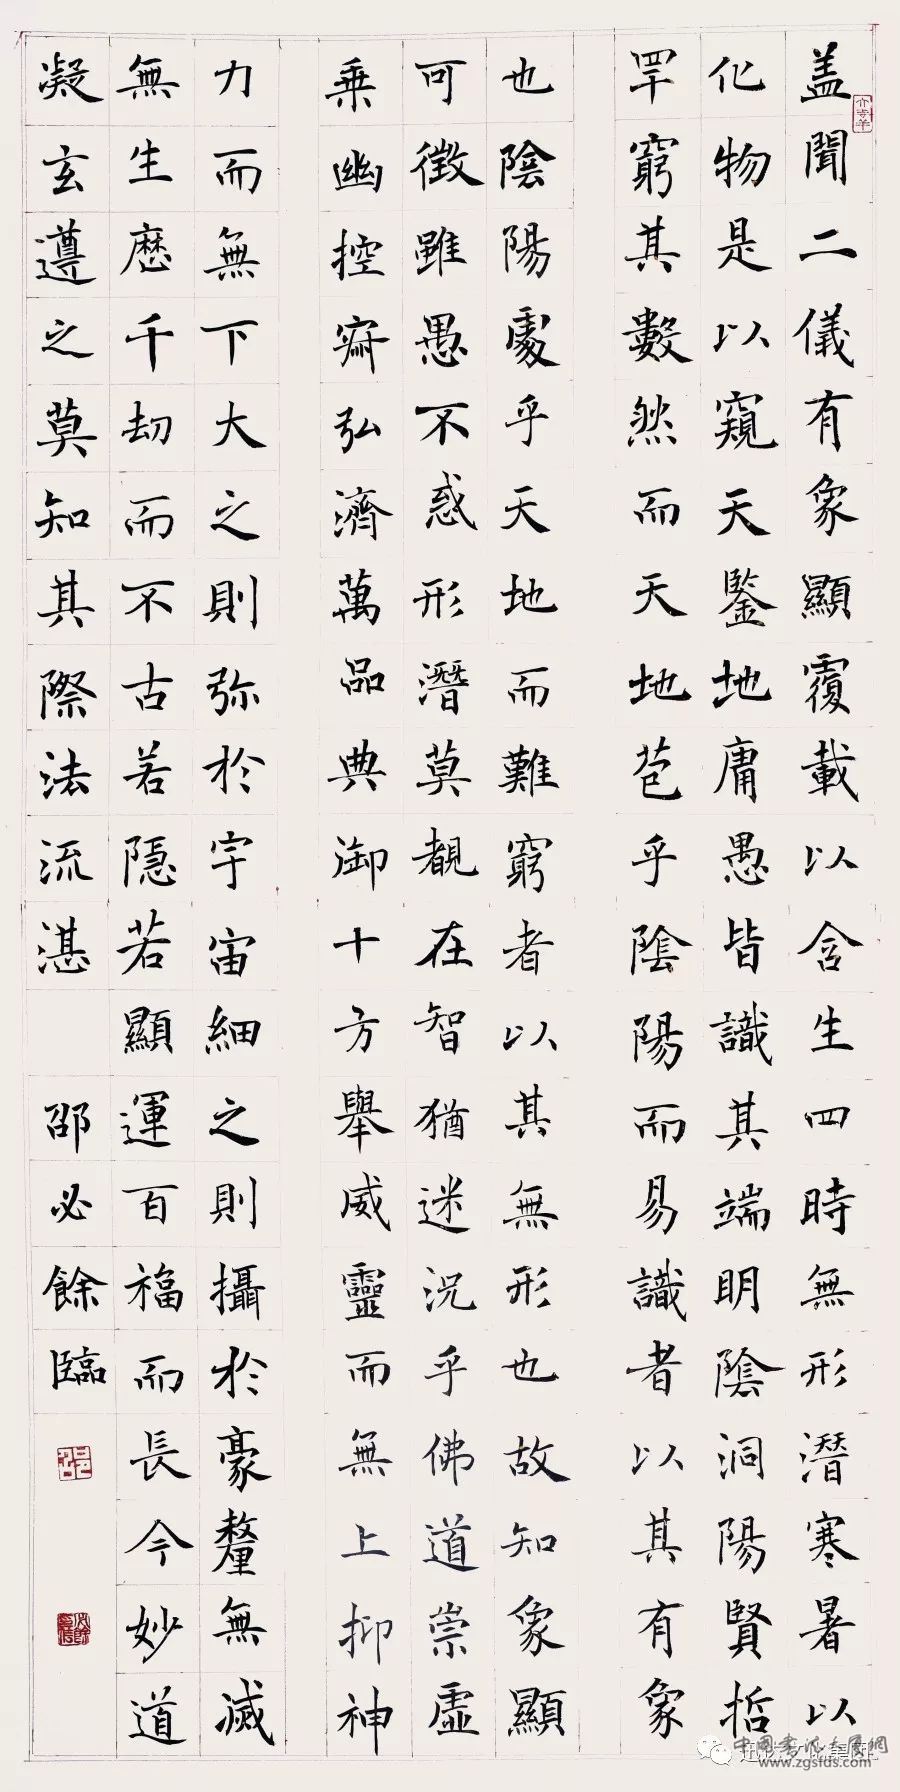 盖聞二儀有象顯覆載以含生四時無形潛寒暑以
化物是以窺天鑒地庸愚皆識其端明陰洞陽賢哲
罕窮其數然而天地苞乎陰陽而易識者以其有象
也陰陽處乎天地而難窮者以其無形也故知象顯
可徵雖愚不惑形潛莫覩在智猶迷況乎佛道崇虛
乘幽控寂弘濟萬品典御十方舉威靈而無上抑神
力而無下大之則弥於宇宙細之則攝於豪釐無滅
無生歷千劫而不古若隱若顯運百福而長今妙道
凝玄遵之莫知其際法流湛
邵必餘臨
www.zgsfds.com